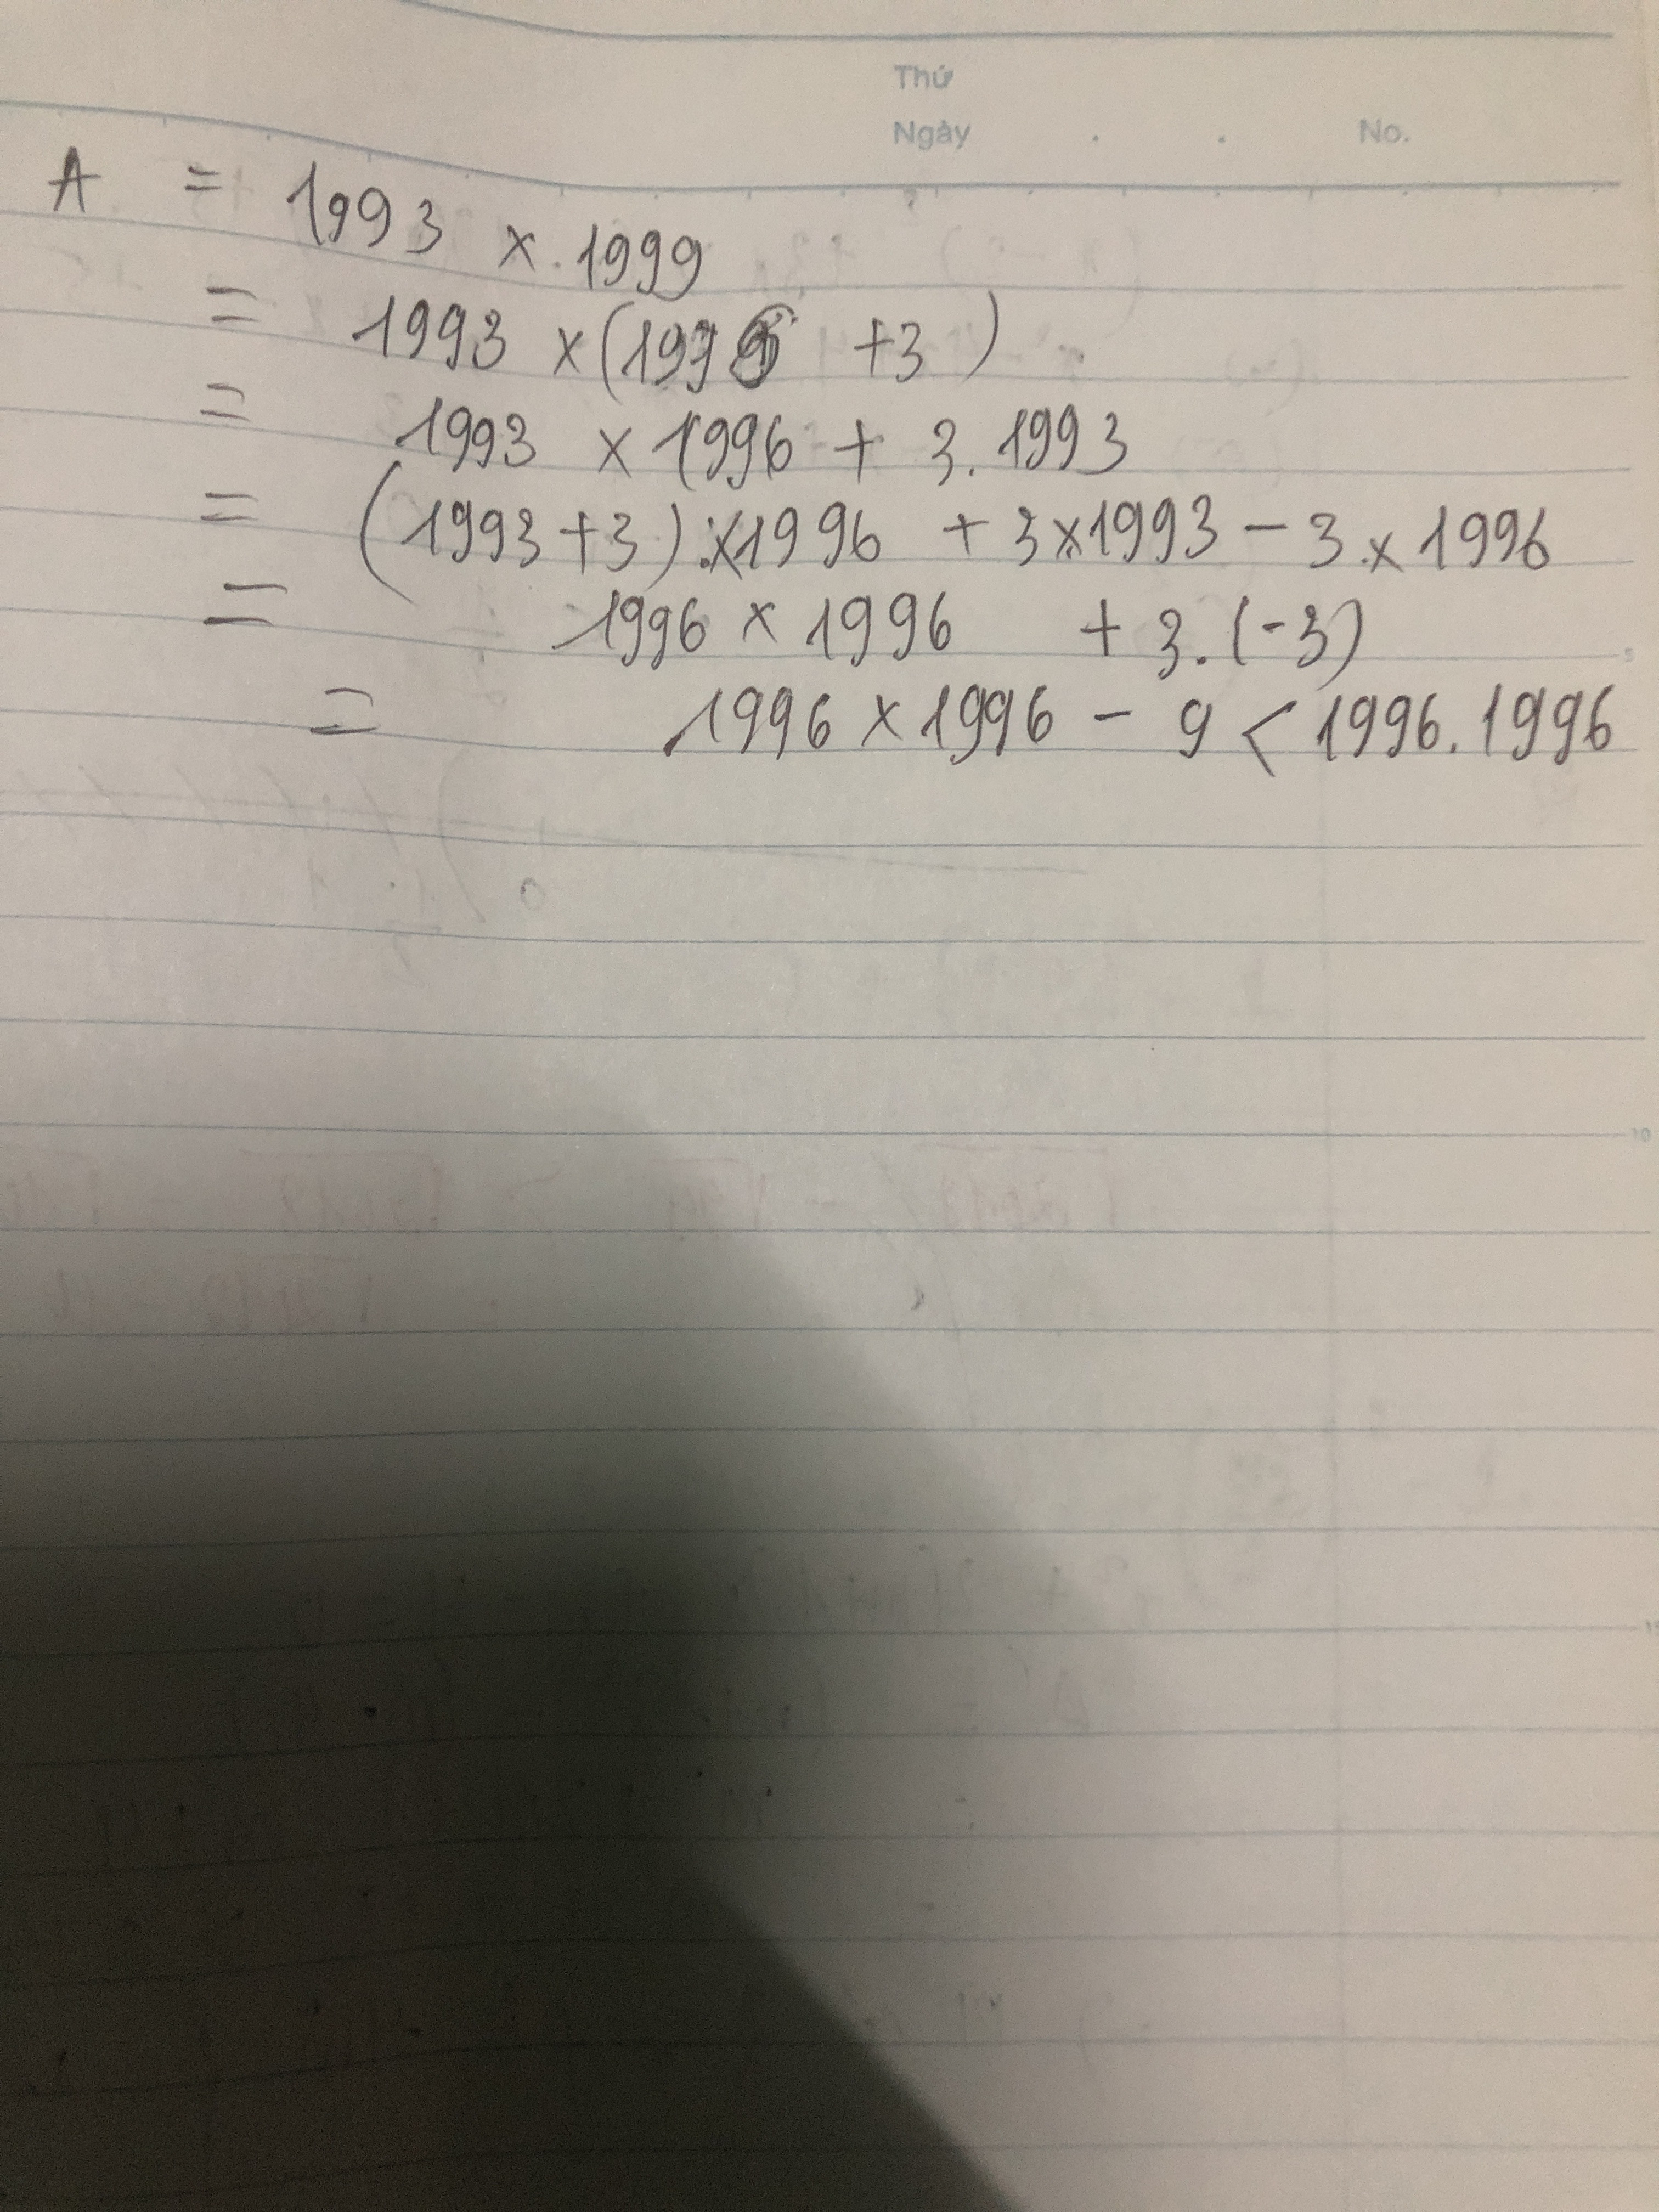 Thứ
Ngày . . No.
A = 1993 x 1999
= 1993 x (1996 + 3)
= 1993 x 1996 + 3. 1993
= (1993 + 3) x 1996 + 3 x 1993 - 3 x 1996
= 1996 x 1996 + 3. (-3)
= 1996 x 1996 - 9 < 1996. 1996
5
10